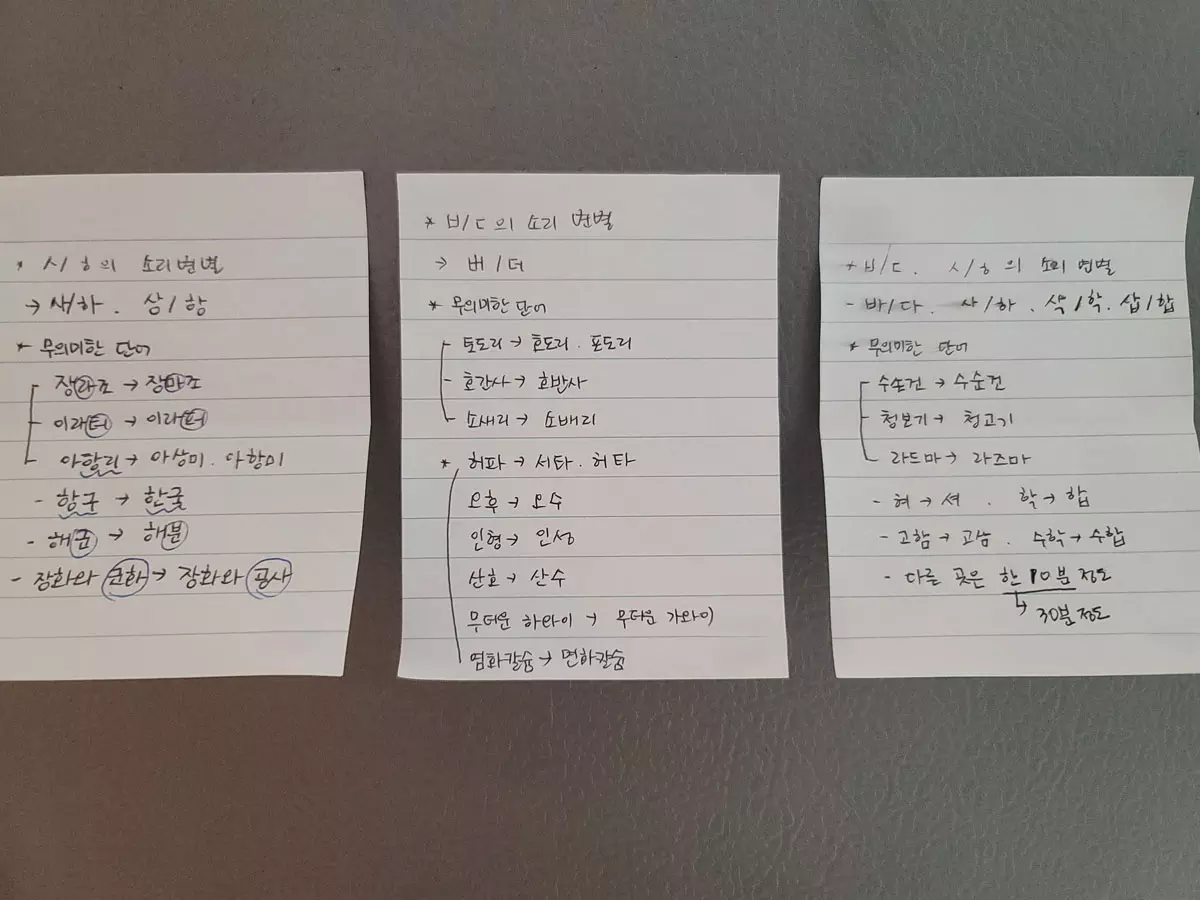 * ㅅ/ㅎ의 소리변별
→ 새/하. 삼/함
* 무의미한 단어
장롸조 → 장마조
이래터 → 이래퍼
아함리 → 아상미. 아항미
- 항구 → 한굴
- 해군 → 해분
- 장화와 군화 → 장화와 공사
* ㅂ/ㄷ의 소리 변별
→ 버/더
* 무의미한 단어
토도리 → 호도리. 포도리
- 호간사 → 호반사
소새리 → 소배리
* 허파 → 서타. 허타
오후 → 오수
인형 → 인성
산호 → 산수
무더운 하와이 → 무더운 가와이
염화칼슘 → 면화칼슘
* ㅂ/ㄷ. ㅅ/ㅎ의 소리 변별
- 바/다. 사/하. 삭/학. 삽/합
* 무의미한 단어
수손건 → 수순건
청보기 → 청고기
라드마 → 라즈마
- 혀 → 셔. 학 → 합
- 고함 → 고삼. 수학 → 수합
- 다줄 곳은 한 10분 정도
↳ 30분 정도